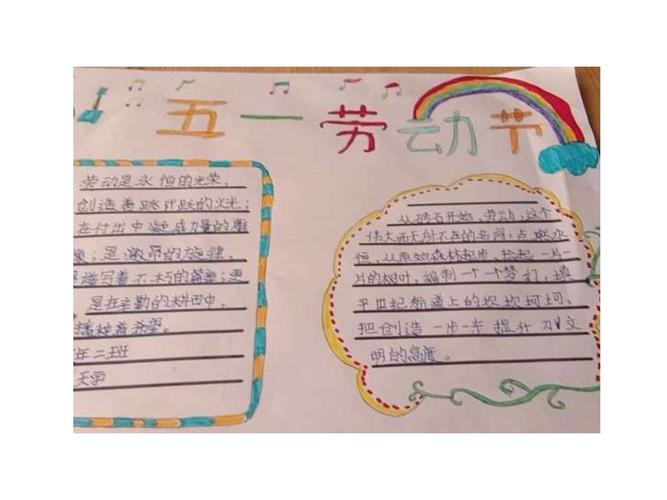 五一劳动节
劳动是永恒的光荣，
创造着跳跃的火光；
在付出中凝成力量的雕
；是激昂的旋律，
谱写着不朽的篇章；更
是在辛勤的耕田中，
播种着希望。
年二班
从砖石开始，劳动，这个
伟大而无所不在的名词，点燃永
恒，从原始森林起步，拾起一片
片的树叶，编制一个个梦打，填
平世纪新道上的坎坎坷坷，
把创造一步一步提升
文
明的高度。